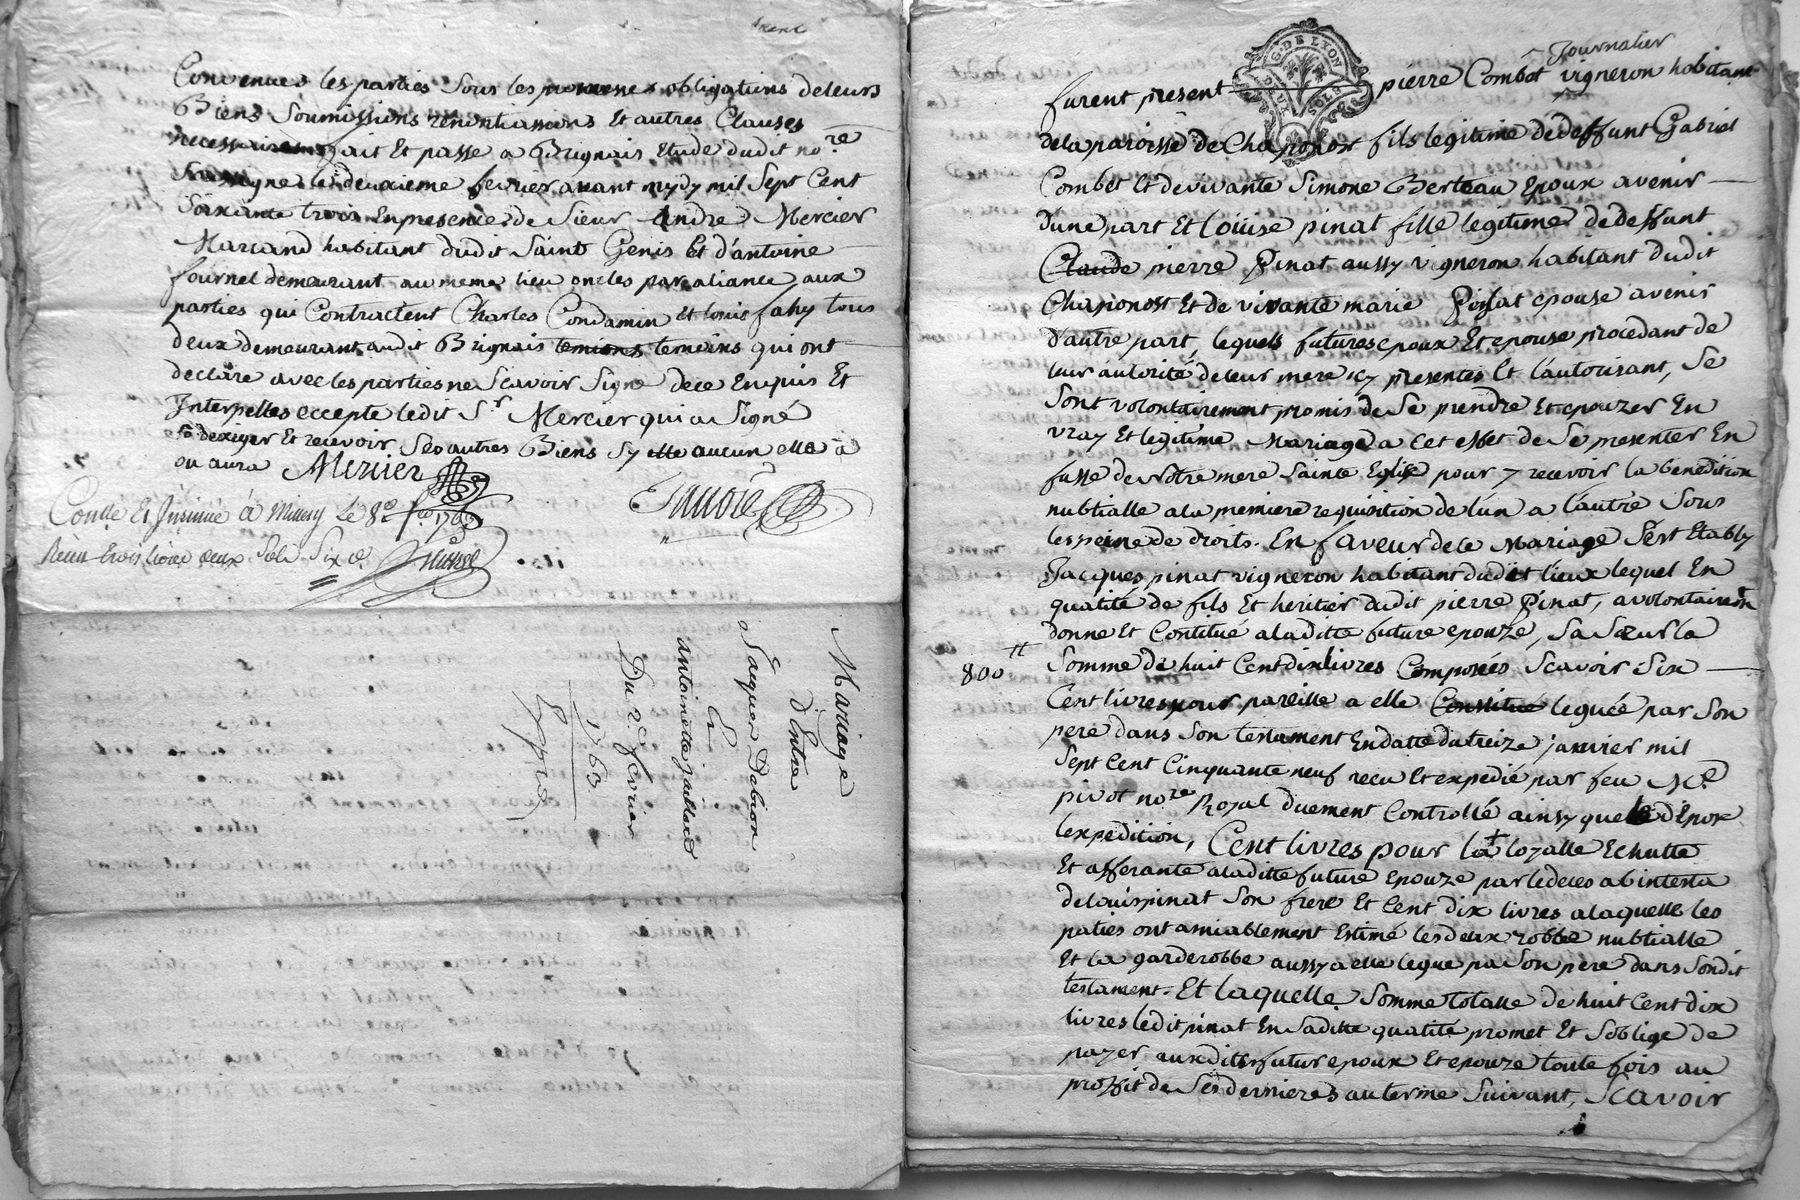 Convenues les parties Sous les obligations deleurs
Biens Soumissions renontiations Et autres Clauses
necessaires fait Et passé a Brignais Etude dudit no.re
Soussigné le deuxieme fevrier avant mydy mil Sept Cent
Soixante trois En presence de Sieur Andre Mercier
Marcand habitant dudit Saint Genis Et d'antoine
fournel demeurant au meme lieu oncles par aliance aux
parties qui Contractent Charles Condamin et louis fahy tous
deux demeurant audit Brignais temions temoins qui ont
declare avec les parties ne Scavoir Signe de ce Enquis Et
Interpelles eccepte ledit Sr Mercier qui a Signé
dexiger Et recevoir Ses autres Biens Sy elle aucun elle a
ou aura Mercier
Sauvré
Conlle Et Insinué á Millery Le 8e fer 1763
Receu trois livre deux Sols Six d.
Mariage
d'Entre
Jacques Dabion
Et
antoinette jallard
Du 2e fevrier
1763
Exppié
Journalier
G. DE LYON
DEUX SOLS
furent present pierre Combet vigneron habitant
de la paroisse de Chaponost fils legitime de deffunt Gabriel
Combet Et de vivante Simone Berteau Epoux avenir
d'une part Et Loüise pinat fille legitime de deffunt
Claude pierre Pinat aussy vigneron habitant dudit
Chaponost Et de vivante marie Pinat epouse avenir
d'autre part, lequels futures epoux Et epouse procedant de
leur autorité de leur mere icy presentes Et l'autorisant, Se
Sont volontairement promis de Se prendre Et epouzer En
vray Et legitime Mariage a cet effet de Se presenter En
fasse de Notre mere Sainte Eglise pour y recevoir la benediction
nubtialle a la premiere requisition de lun a lautre Sous
les peine de droits. En faveur de ce Mariage Sest Etably
Jacques pinat vigneron habitant dudit lieux lequel En
qualité de fils Et heritier dudit pierre Pinat, a volontairemt
donne Et Contitué a laditte future epouze, Sa Sœur la
800 tt Somme de huit Cent dix livres Composées Scavoir Six
Cent livres pour pareille a elle Constitué leguée par Son
pere dans Son testament En datte du treize janvier mil
Sept Cent Cinquante neuf recu Et expedié par feu Me
pivot no.re Royal duement Controllé ainsy que
lexpedition, Cent livres pour la loyalle Echutte
Et afferante a laditte future Epouze par le deces abintesta
de loüis pinat Son frere Et Cent dix livres a laquelle les
paties ont amiablement Estimé les deux robbe nubtialle
Et la garderobbe aussy a elle legue pa Son pere dans Sondit
testament. Et laquelle Somme totalle de huit Cent dix
livres ledit pinat En Saditte qualité promet Et Soblige de
payer auxdits futur epoux Et epouze toute fois au
proffit de Ses dernieres au terme Suivant, Scavoir